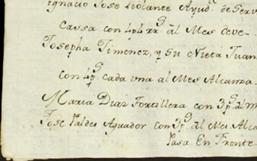 Ignacio Jose Violante Ayud.^e de Serv
Cassa con
al Mes Ceve
Josepha Timenez, y su Nieta Juan
con cada una al Mes Alcanza
Maria Dias Torsillera con al m
Jose Valdes Aguador con al Mes Alca
Pasa En Frente